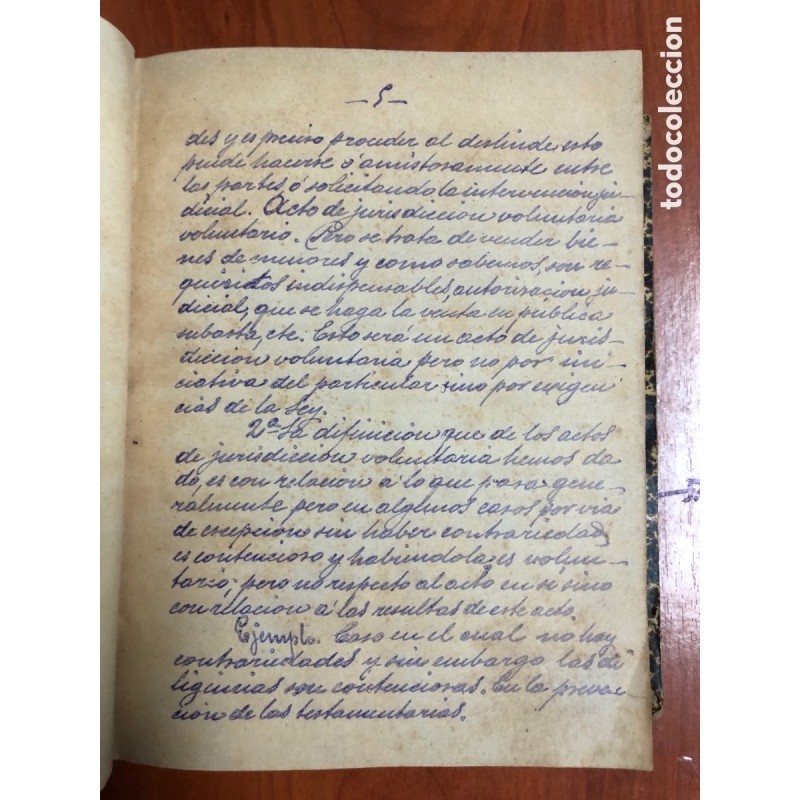 — 5 —
des y es preciso proceder al deslinde esto
puede hacerse ó amistosamente entre
las partes ó solicitando la intervencion ju-
dicial. Acto de jurisdiccion voluntaria
voluntario. Pero se trata de vender bie-
nes de menores y como sabemos, son re-
quisitos indispensables, autorizacion ju-
dicial, que se haga la venta en pública
subasta, etc. Esto será un acto de juris-
diccion voluntaria pero no por ini-
ciativa del particular sino por exigen
cias de la Ley.
2ª La difinicion que de los actos
de jurisdiccion voluntaria hemos da
do, es con relacion á lo que pasa gene-
ralmente pero en algunos casos por via
de escepcion sin haber contrariedad
es contencioso y habiendola es volun-
tario; pero no respecto al acto en si sino
con relacion á las resultas de este acto.
Ejemplo. Caso en el cual no hay
contrariedades y sin embargo las di
ligencias son contenciosas. En la preven-
cion de las testamentarias.
todocoleccion